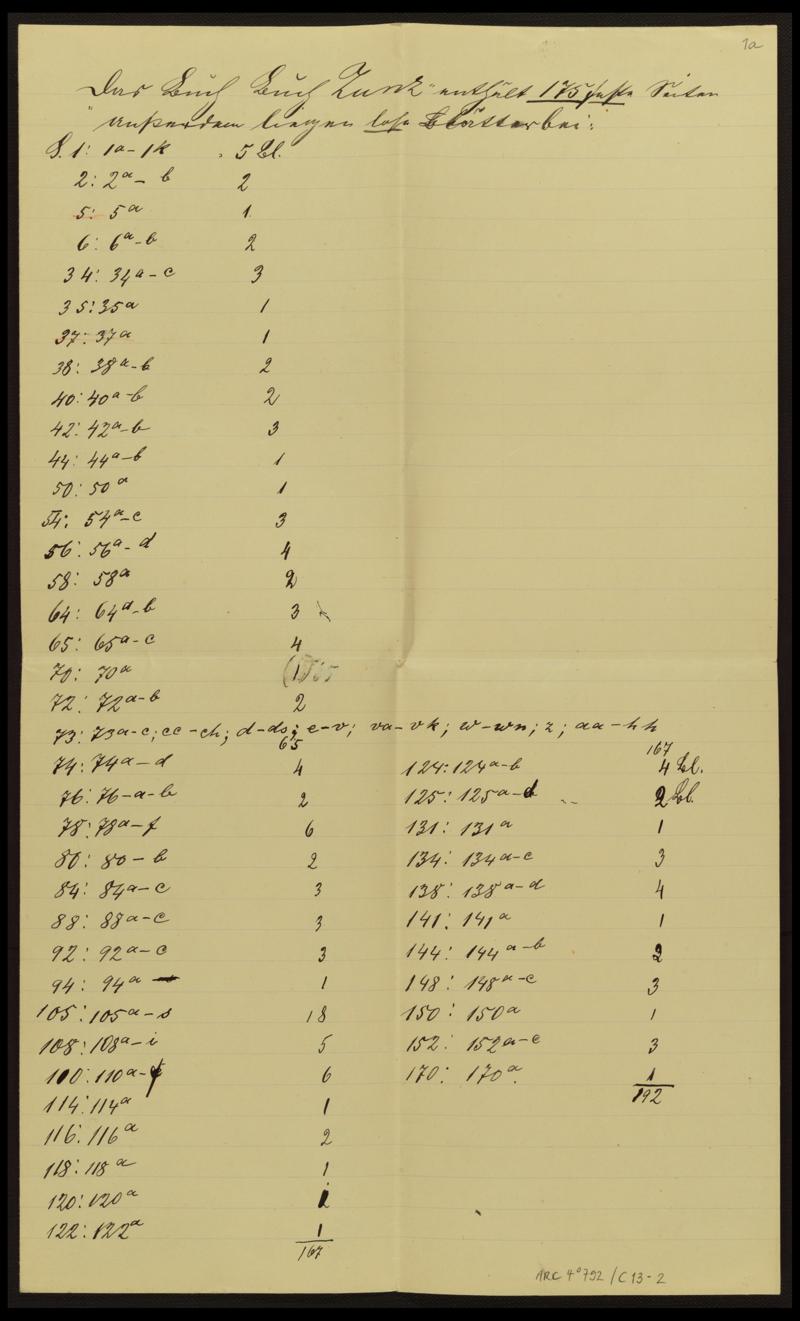 1a
Das Buch Buch Zunz" enthält 175 feste Seiten
außerdem liegen lose Blätter bei:
S. 1: 1a-1k 5 Bl.
2: 2a- b 2
5: 5a 1
6: 6a-b 2
34: 34a-c 3
35: 35a 1
37: 37a 1
38: 38a-b 2
40: 40a-b 2
42: 42a-b 3
44: 44a-b 1
50: 50a 1
54: 54a-c 3
56: 56a-d 4
58: 58a 2
64: 64a-b 3
65: 65a-c 4
70: 70a (1)
72: 72a-b 2
73: 73a-c; cc-ch; d-ds; e-v; va-vk; w-wn; z; aa-hh
65
74: 74a-d 4
76: 76-a-b 2
78: 78a-f 6
80: 80-b 2
84: 84a-c 3
88: 88a-c 3
92: 92a-c 3
94: 94a 1
105: 105a-s 18
108: 108a-i 5
110: 110a-f 6
114: 114a 1
116: 116a 2
118: 118a 1
120: 120a 1
122: 122a 1
167
167
124: 124a-b 4 Bl.
125: 125a-b 2 Bl.
131: 131a 1
134: 134a-c 3
138: 138a-d 4
141: 141a 1
144: 144a-b 2
148: 148a-c 3
150: 150a 1
152: 152a-c 3
170: 170a. 1
192
ARC 4°792/C13-2